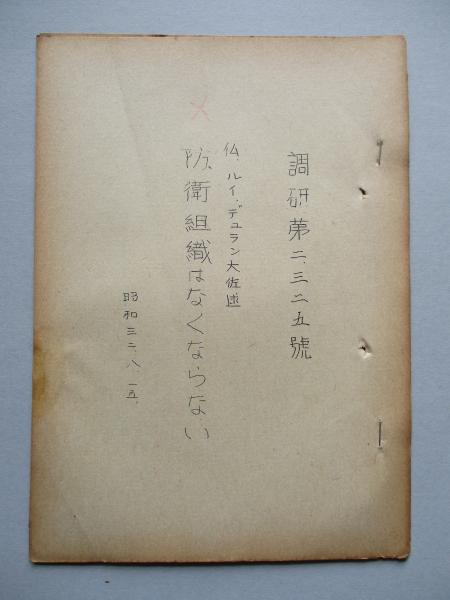 調研第二、三二五號
仏、ルイ・デュラン大佐述
防衛組織はなくならない
昭和三二、八、一五、